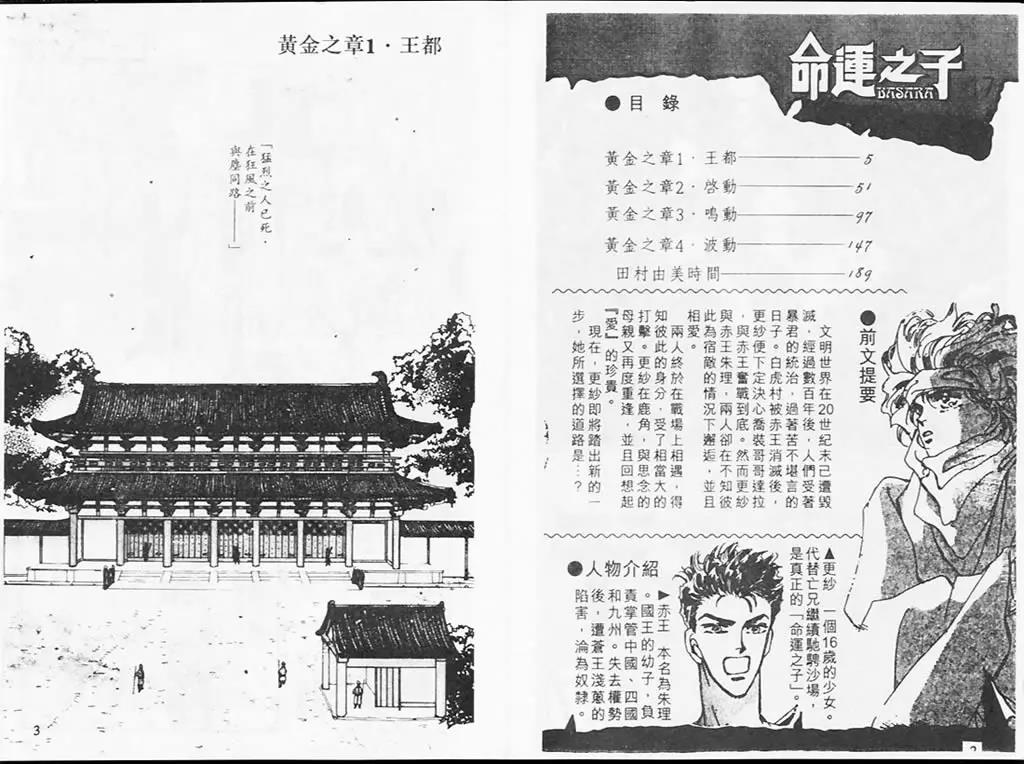 命運之子
BASARA
17
●目錄
黃金之章1・王都——5
黃金之章2・啓動——51
黃金之章3・鳴動——97
黃金之章4・波動——147
田村由美時間——189
●前文提要
文明世界在20世紀末已遭毀
滅，經過數百年後，人們受著
暴君的統治，過著苦不堪言的
日子。白虎村被赤王消滅後，
更紗便下定決心喬裝哥哥達拉
，與赤王奮戰到底。然而更紗
與赤王朱理，兩人卻在不知彼
此為宿敵的情況下邂逅，並且
相愛。
兩人終於在戰場上相遇，得
知彼此的身分，受了相當大的
打擊。更紗在鹿角，與思念的
母親又再度重逢，並且回想起
『愛』的珍貴。
現在，更紗即將踏出新的一
步，她所選擇的道路是…？
▲更紗 一個16歲的少女。
代替亡兄繼續馳騁沙場，
是真正的「命運之子」。
●人物介紹
▶赤王 本名為朱理
。國王的幼子，負
責掌管中國、四國
和九州。失去權勢
後，遭蒼王淺蔥的
陷害，淪為奴隸。
2
黃金之章1・王都
「猛烈之人已死，
在狂風之前
與塵同路——」
3